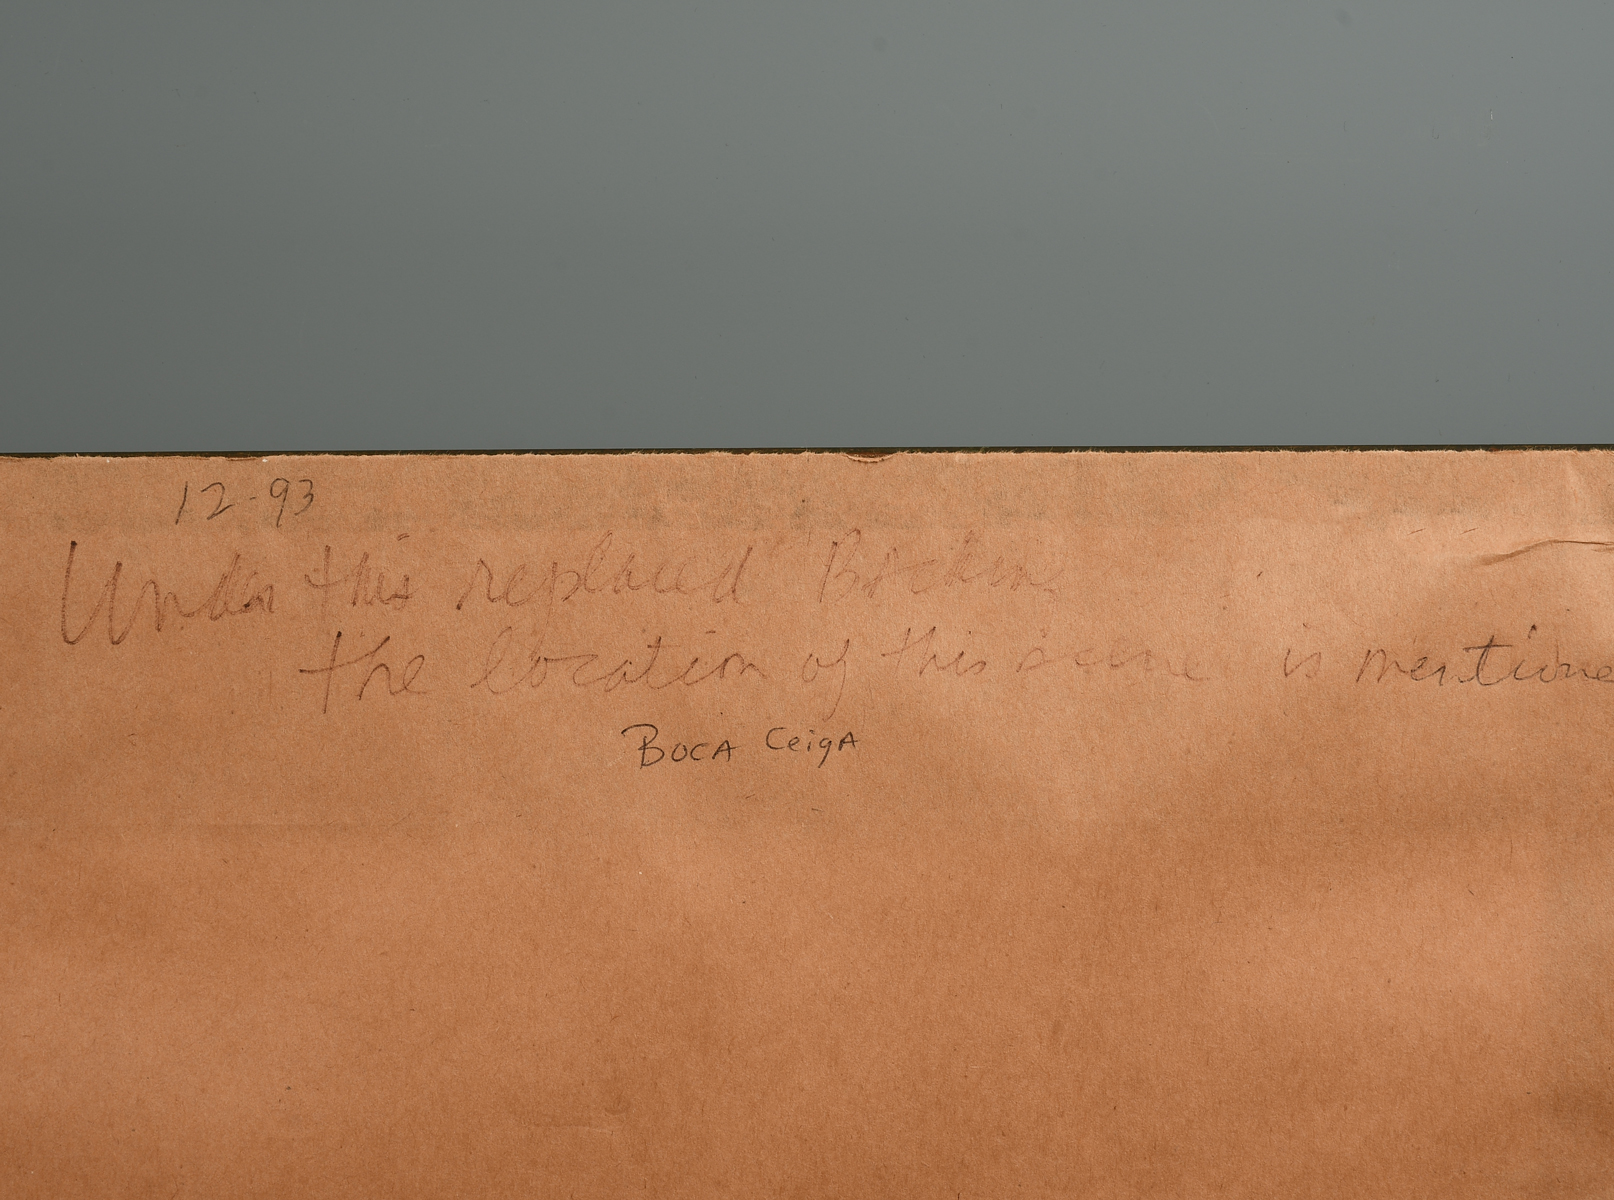 12-93
Under this replaced Backing
the location of this scene is mentione
BOCA CeigA